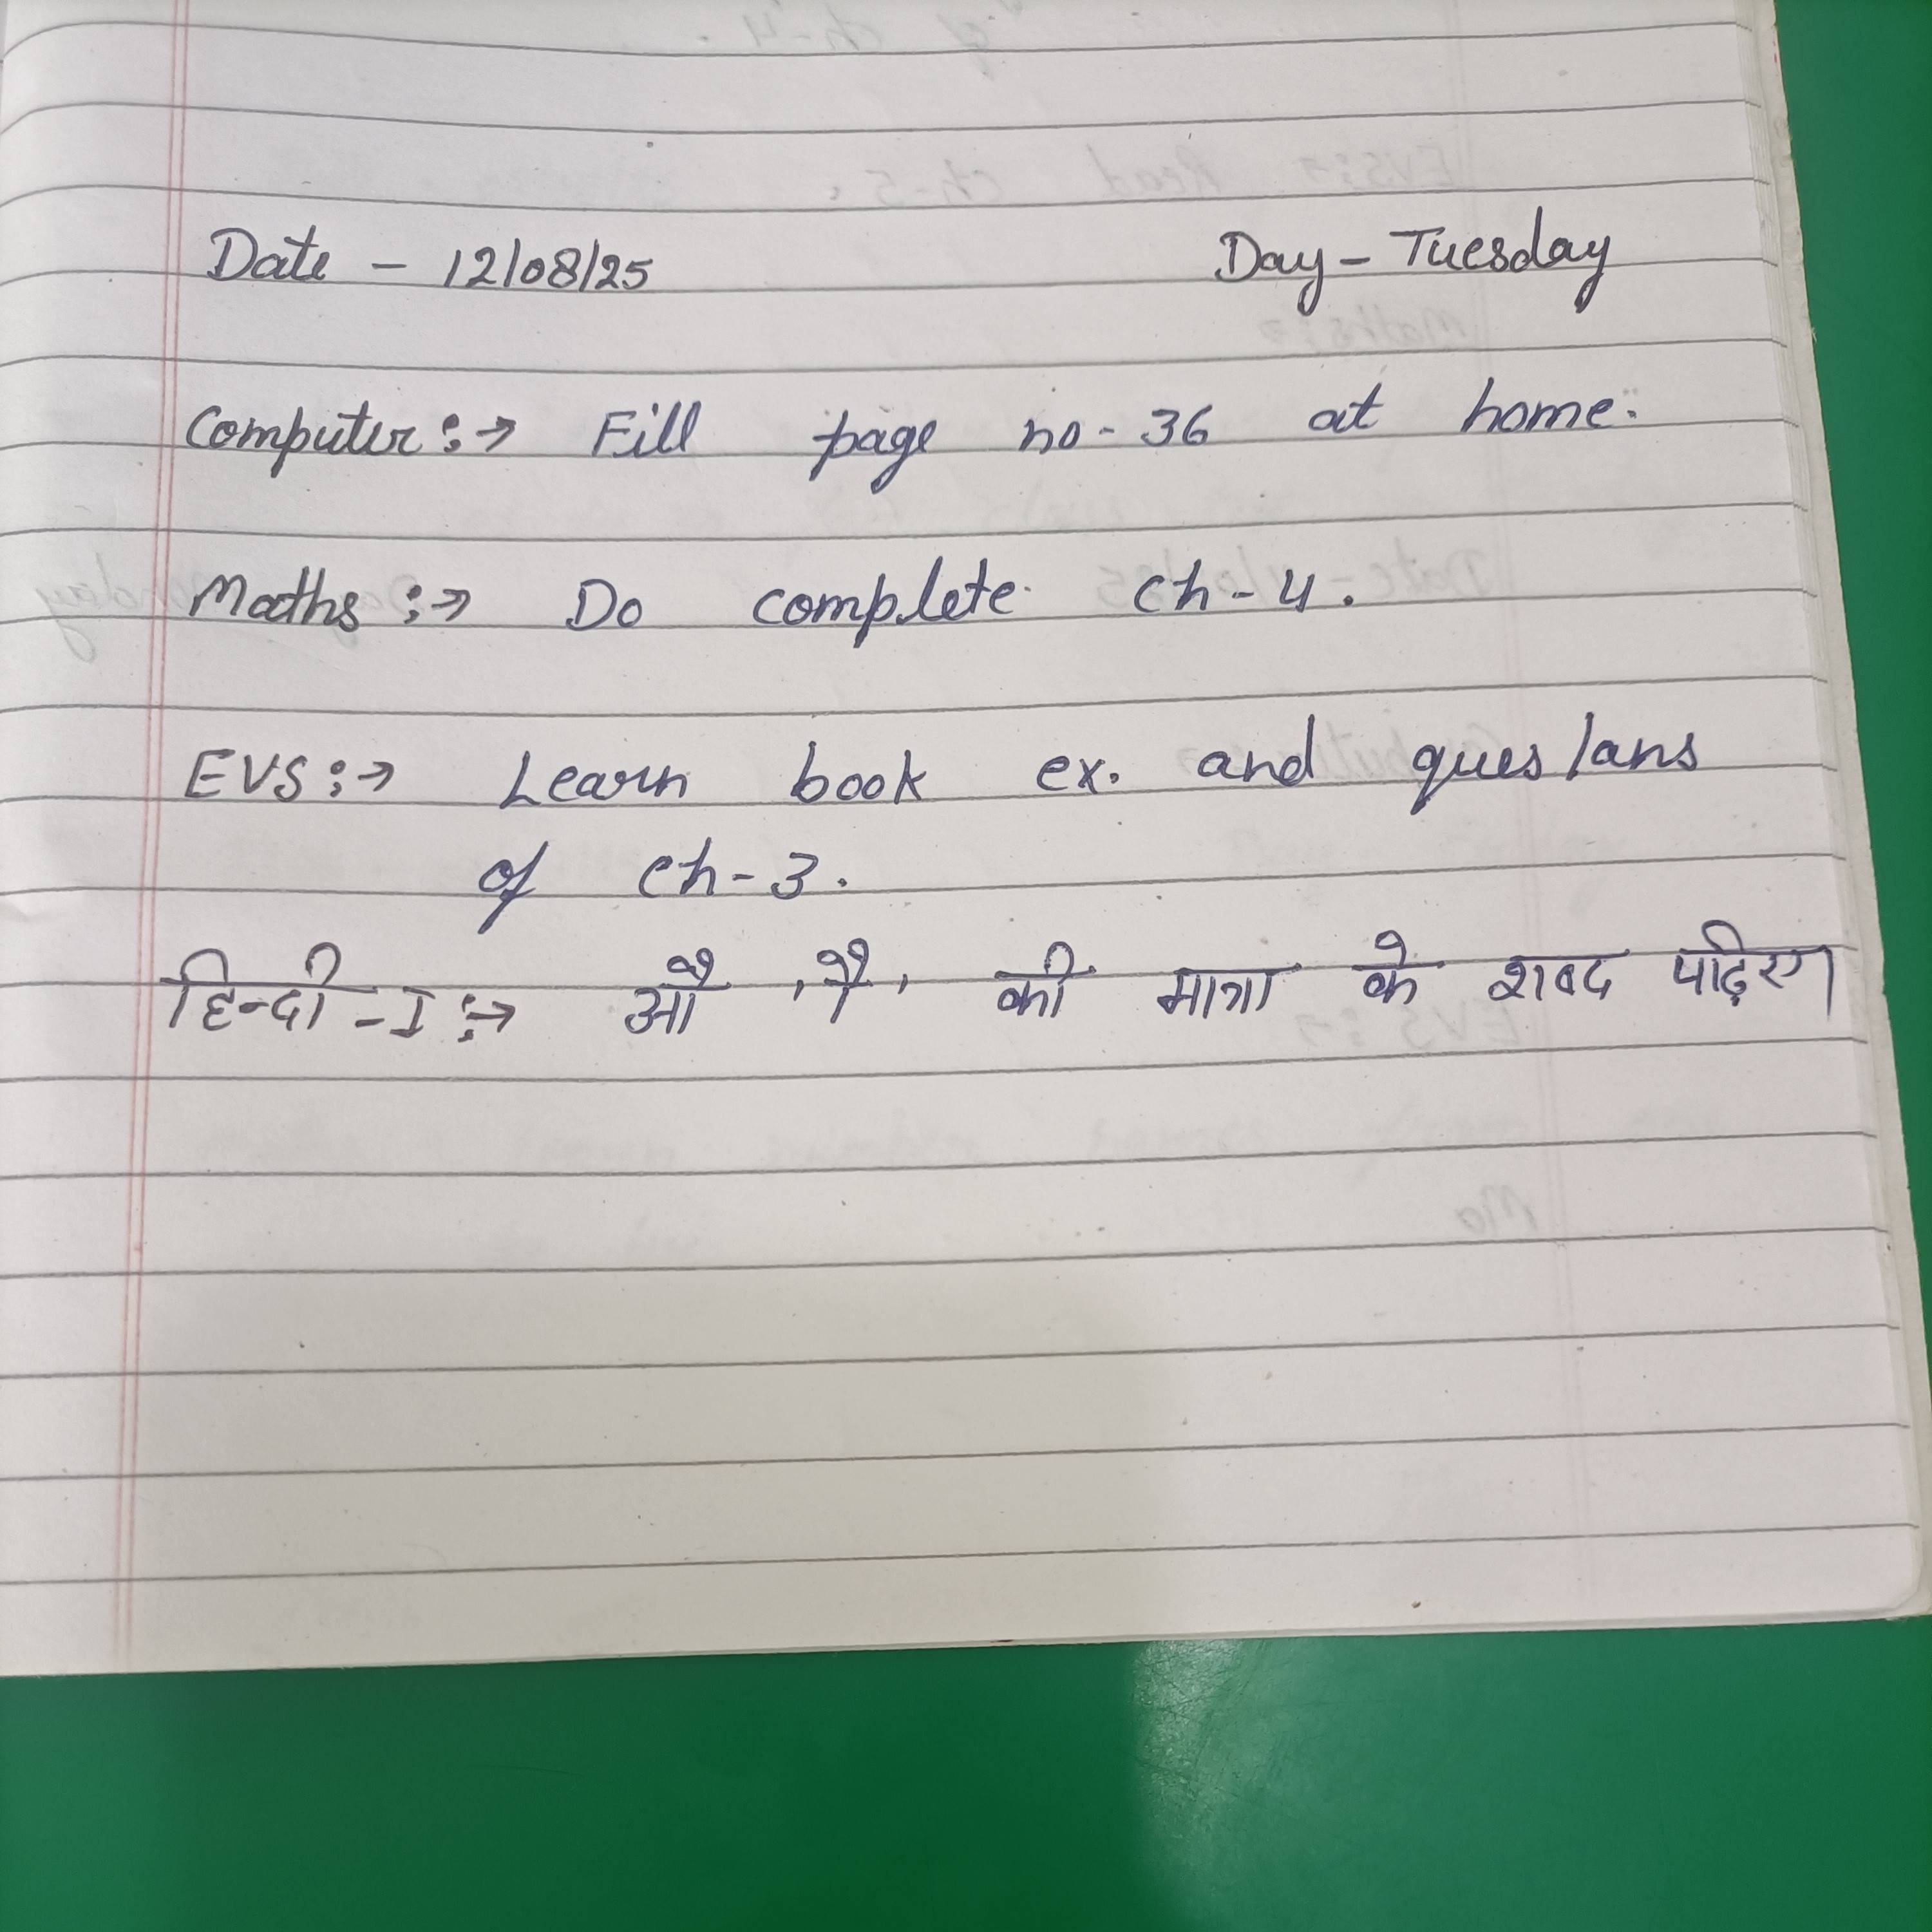 Date - 12/08/25 Day - Tuesday
Computer :→ Fill page no - 36 at home.
Maths :→ Do complete ch - 4.
EVS :→ Learn book ex. and ques/ans
of ch - 3.
हिन्दी - I :→ औ , ौ , की मात्रा के शबद पढ़िए।